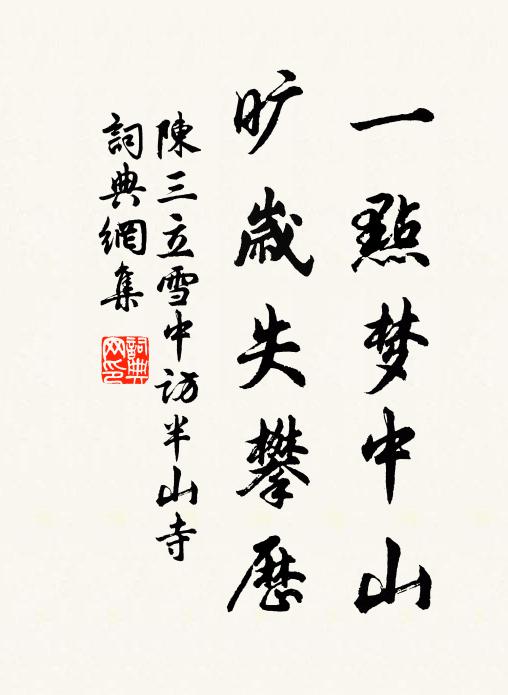 一點梦中山
旷歲失攀歷
陳三立雪中访半山寺
詞典網集
詞典
网印